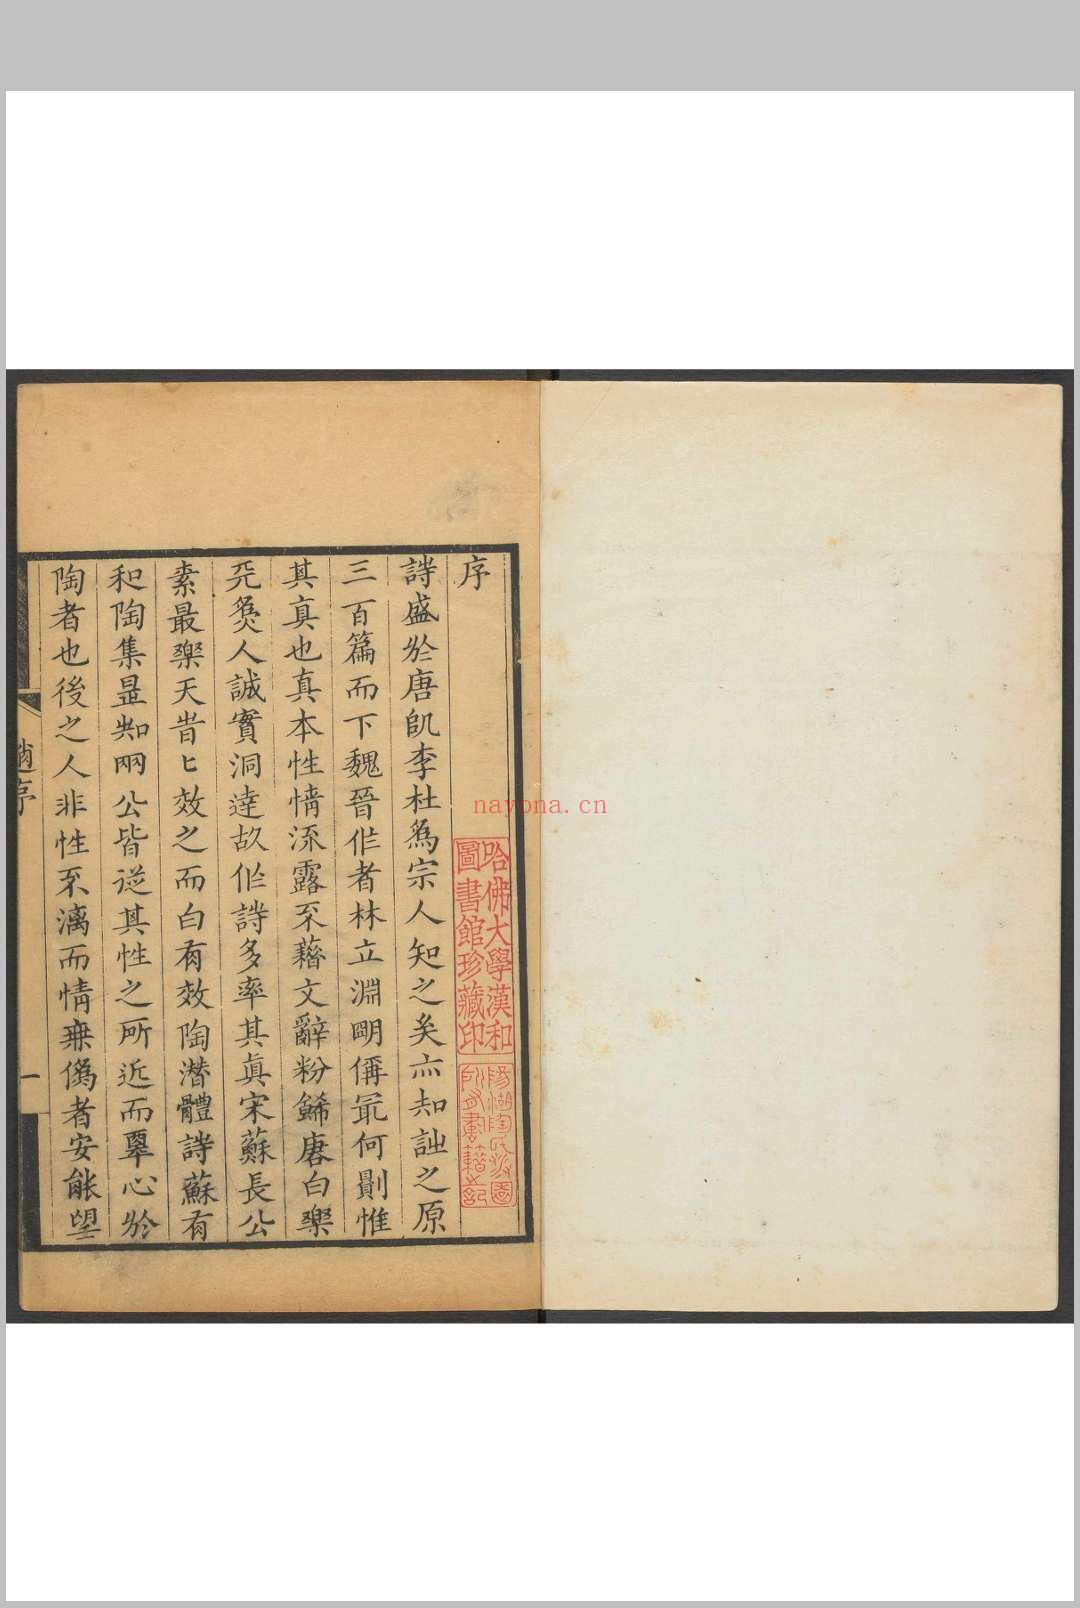 序
詩盛於唐則李杜為宗人知之矣亦知詘之原
三百篇而下魏晉作者林立淵明偁冣何則惟
其真也真本性情流露不藉文辭粉飾唐白樂
天為人誠實洞達故作詩多率其眞宋蘇長公
素最樂天皆匕效之而白有效陶潛體詩蘇有
和陶集是知兩公皆從其性之所近而單心於
陶者也後之人非性不漓而情無僞者安能望
趙序
一
哈佛大學漢和
圖書館珍藏印
nayona.cn